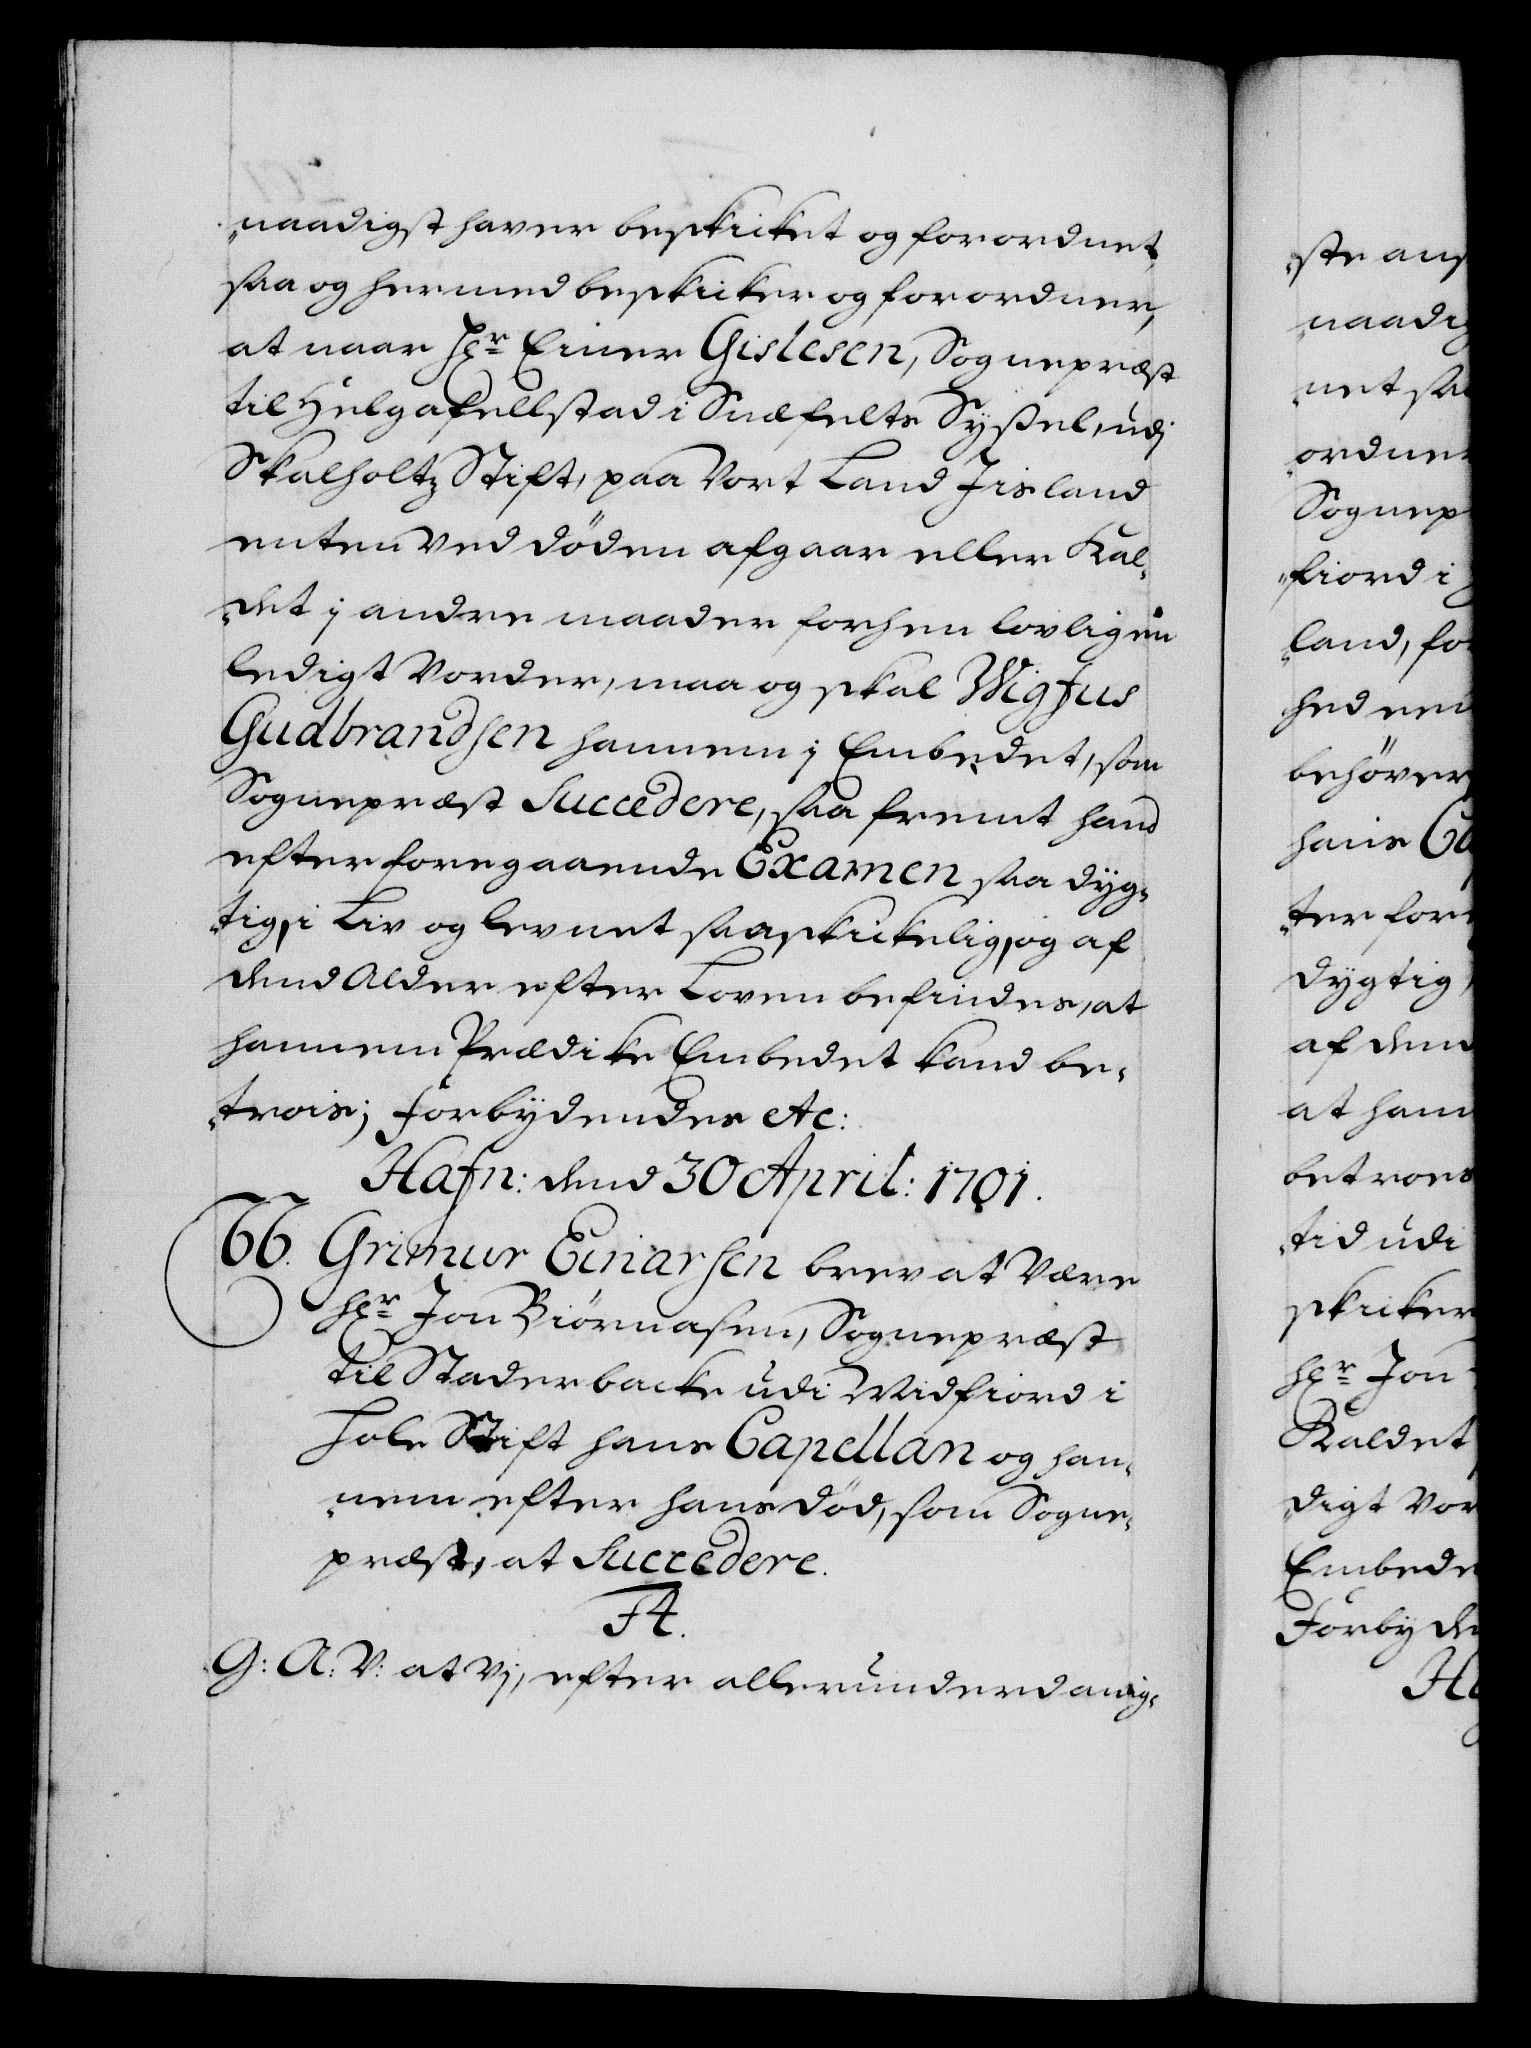 naadigst haver beskicket og forordnet,
saa og hermed beskicker og forordner,
at naar Hr. Einer Gislesen, Sognepræst
til Helgafellstad i Snæfelts Syssel, udj
Skalholtz Stift, paa Vort Land Jisland
enten ved døden afgaar eller Kal-
det j andre maader forhen lovligen
ledigt vorder, maa og skal Wigfus
Gudbrandsen hannem j Embedet, som
Sognepræst Succedere, saa fremt hand
efter foregaaende Examen saa dyg-
tig, i Liv og levnet saa skickelig, og af
dend Alder efter Loven befindes, at
hannem Prædike Embedet kand be-
trois; Forbydendes etc:
Hafn: dend 30 April: 1701.
66. Grimur Einarsen brev at være
Hr. Jon Biörnasen, Sognepræst
til Staderbacke udi Midfiord i
Hole Stift hans Capellan og han-
nem efter hans død, som Sogne-
præst, at Succedere.
F4.
G: A: V: at Vj, efter allerunderdanig-
ste ans
naadig
net saa
ordner
Sognep
fiord i
land, for
hed
behöver
hans Ca
ter for
dygtig,
af dend
at han
betroes
tid udi
skicker
Hr. Jon
Kaldet
digt vor
Embede
Forbyde
Ha